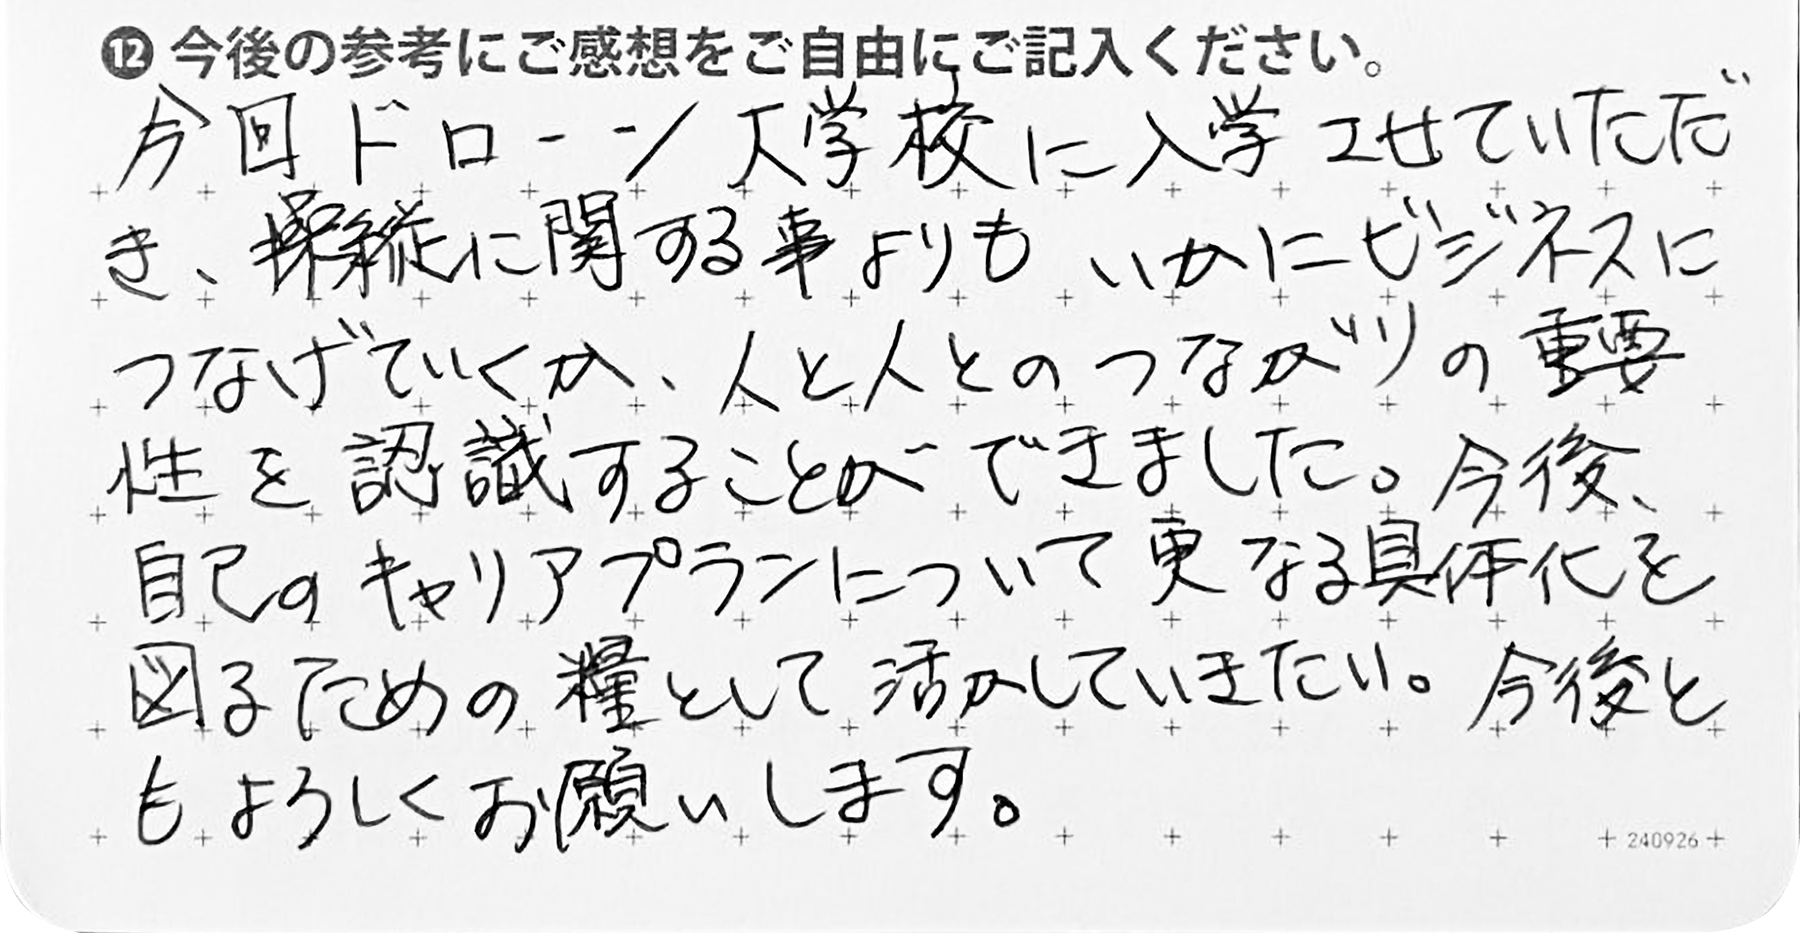 ⓬ 今後の参考にご感想をご自由にご記入ください。
今回ドローン大学校に入学させていただ
き、操縦に関する事よりもいかにビジネスに
つなげていくか、人と人とのつながりの重要
性を認識することができました。今後、
自己のキャリアプランについて更なる具体化を
図るための糧として活かしていきたい。今後と
もよろしくお願いします。
240926